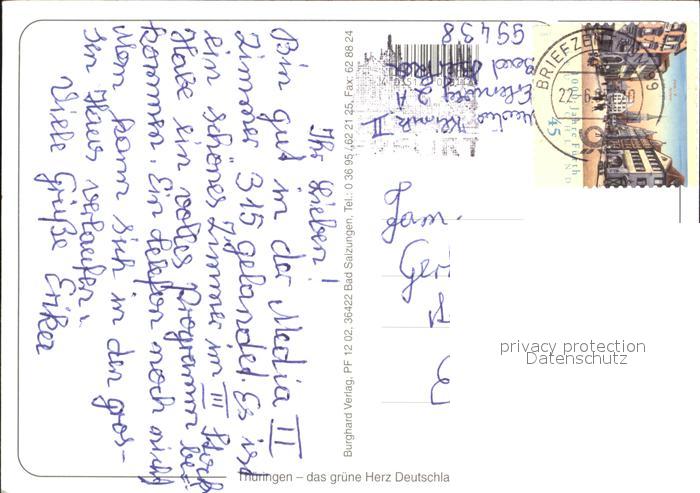 Ihr Lieben!
Bin gut in der Media II
Zimmer 315 gelandet. Es ist
ein schönes Zimmer im III Stock
Habe ein volles Programm be-
kommen. Ein Telefon noch nicht
Man kann sich in den gros-
sen Haus verlaufen.
Viele Grüße Erika
Burghard Verlag, PF 12 02, 36422 Bad Salzungen, Tel.: 0 36 95 / 62 21 25, Fax: 62 88 24
Klinik II
2 A
99438
Bad
Fam.
Ger
BRIEFZEN
99
22.6.
45
1000 Jahre Fürth
privacy protection
Datenschutz
Thüringen – das grüne Herz Deutschla